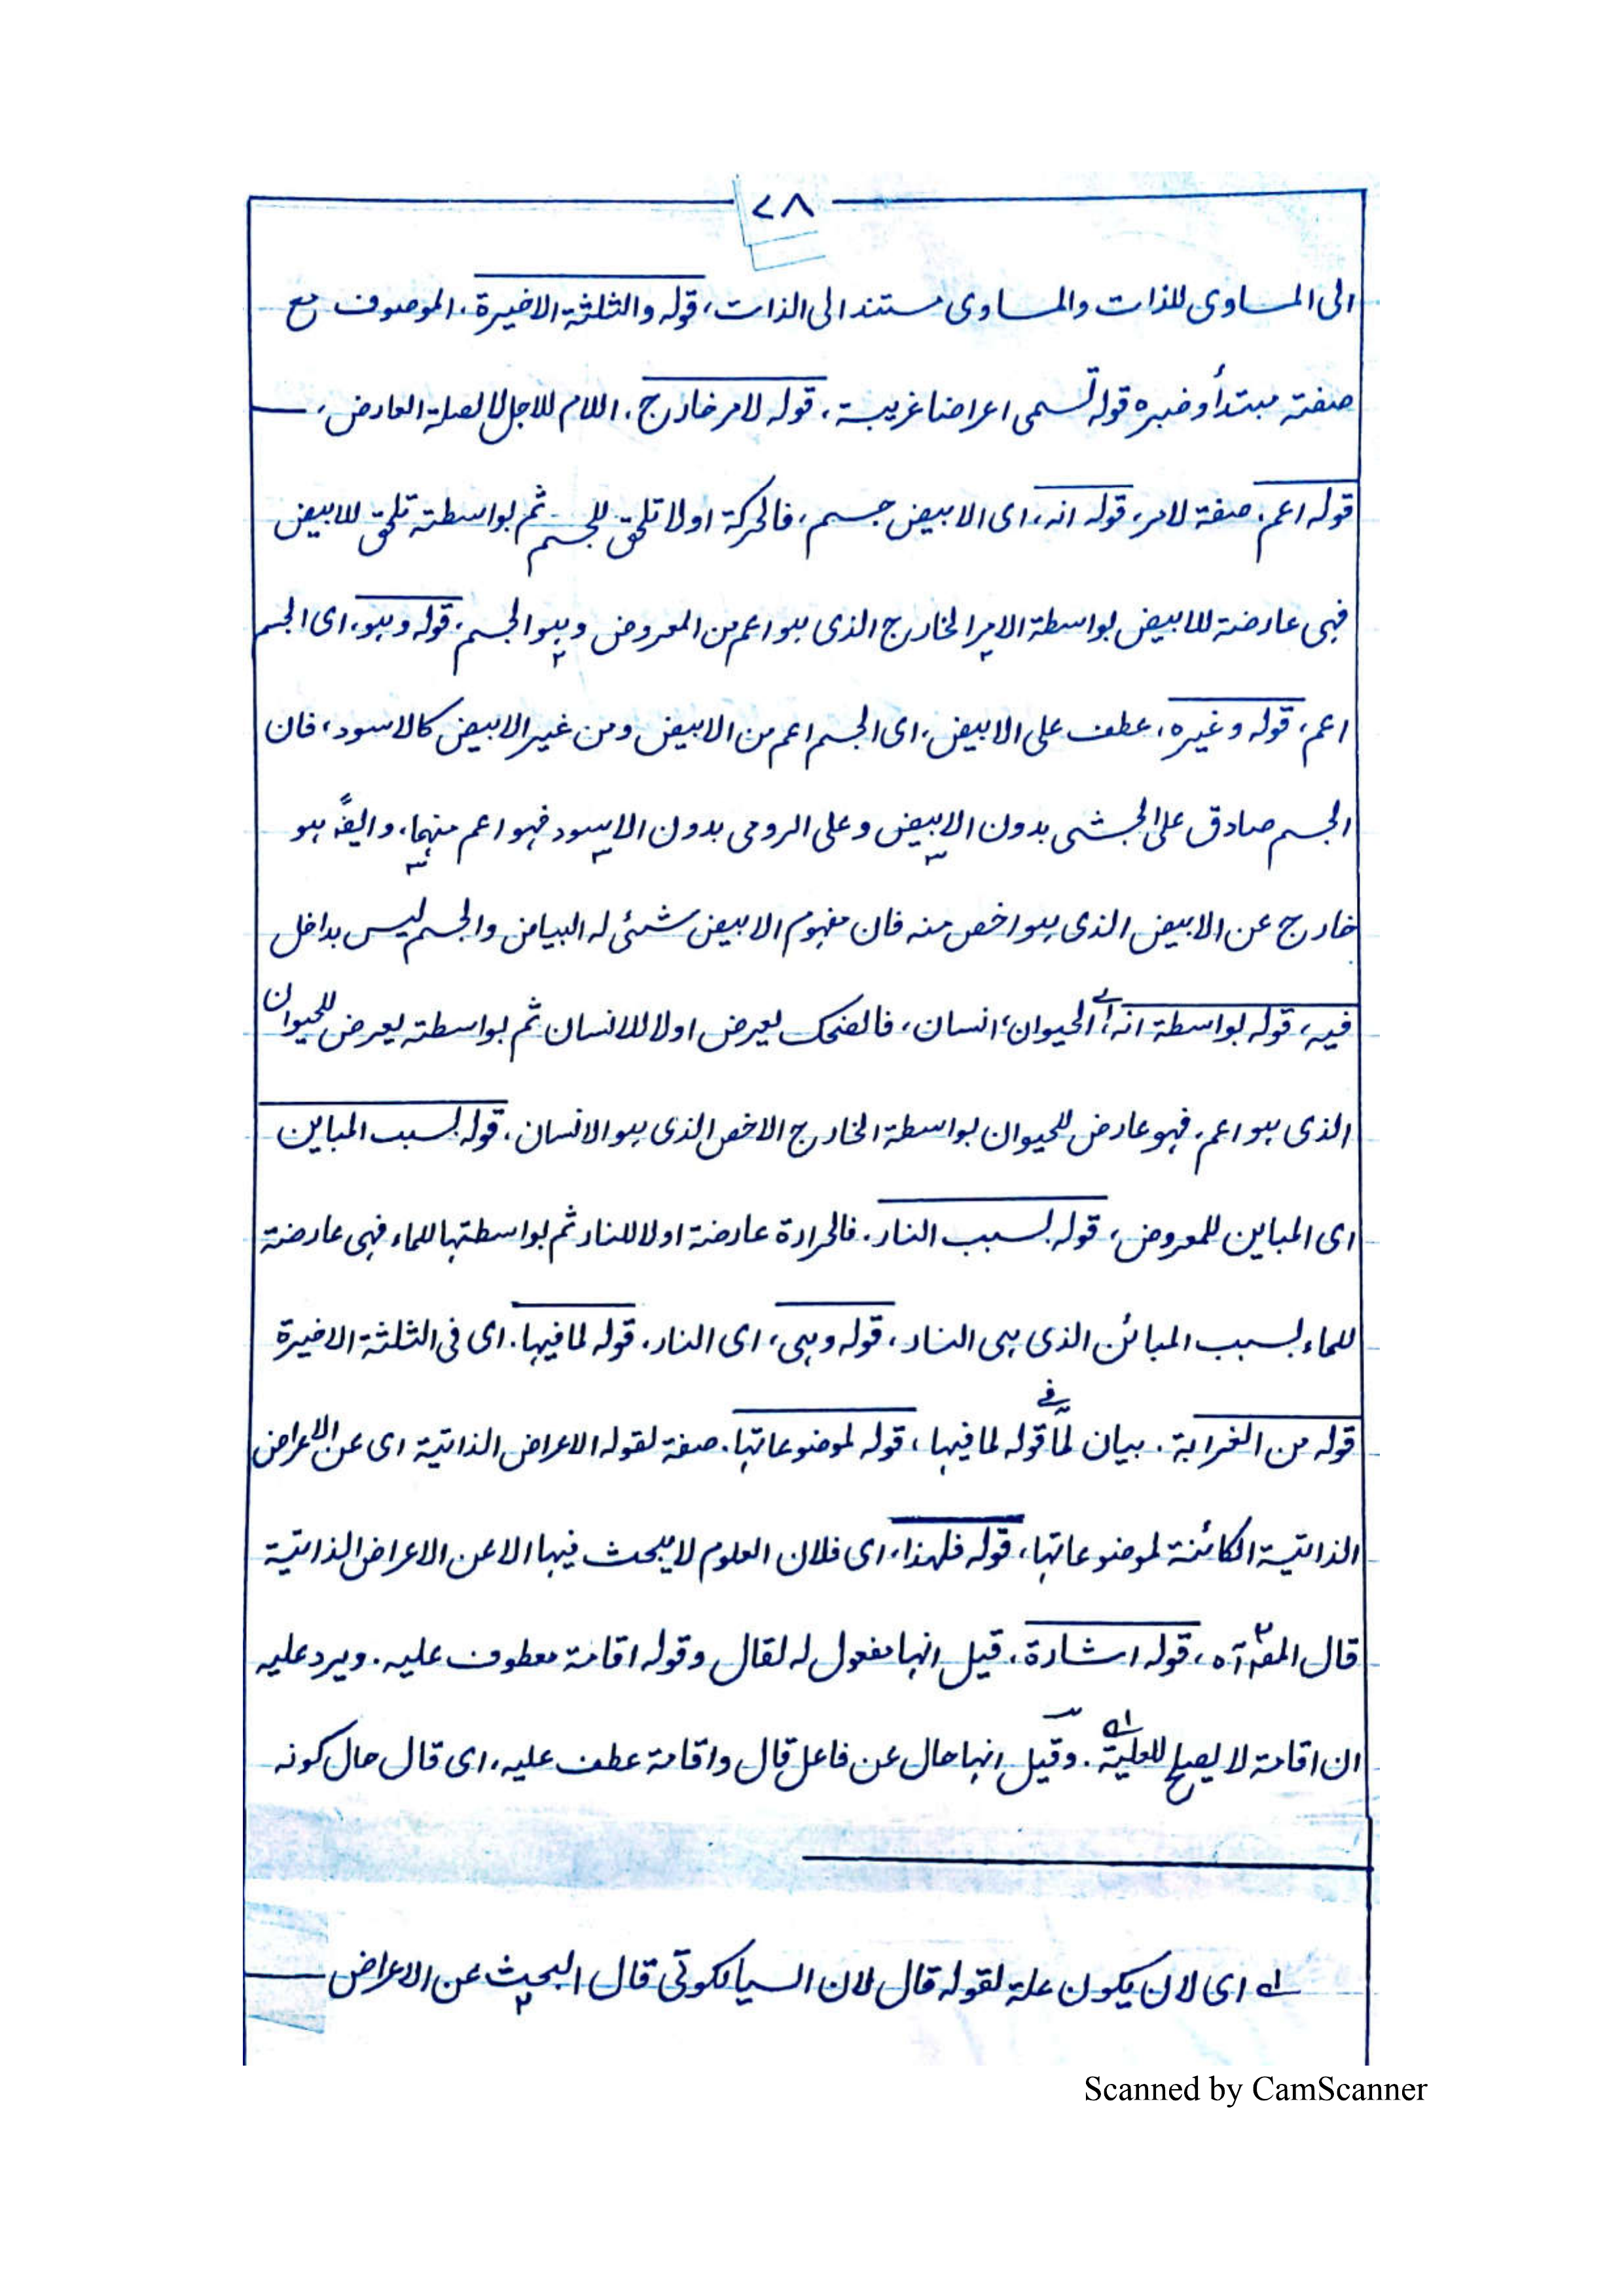 ٢٨
الى المساوى للذات والمساوى مستند الى الذات، قوله والثلثة الاخيرة، الموصوف مع
صفته مبتدأ وخبره قوله تسمى اعراضا غريبة، قوله لامر خارج، اللام للاجل لا لصلة العارض،
قوله اعم، صفة لامر، قوله انه، اى الابيض جسم، فالحركة اولا تلحق للجسم ثم بواسطته تلحق للابيض
فهى عارضة للابيض بواسطة الامر الخارج الذى هو اعم من المعروض وهو الجسم، قوله وهو، اى الجسم
اعم، قوله وغيره، عطف على الابيض، اى الجسم اعم من الابيض ومن غير الابيض كالاسود، فان
الجسم صادق على الحبشى بدون الابيض وعلى الرومى بدون الاسود فهو اعم منهما، وايضًا هو
خارج عن الابيض الذى هو اخص منه فان مفهوم الابيض شئى له البياض والجسم ليس بداخل
فيه، قوله بواسطة انه، اے الحيوان، انسان، فالضحك يعرض اولا للانسان ثم بواسطته يعرض للحيوان
الذى هو اعم، فهو عارض للحيوان بواسطة الخارج الاخص الذى هو الانسان، قوله بسبب المباين
اى المباين للمعروض، قوله بسبب النار، فالحرارة عارضة اولا للنار ثم بواسطتها للماء فهى عارضة
للماء بسبب المبائن الذى هى النار، قوله وهى، اى النار، قوله لما فيها، اى فى الثلثة الاخيرة
قوله من الغرابة، بيان لما فے قوله لما فيها، قوله لموضوعاتها، صفة لقوله الاعراض الذاتية اى عن الاعراض
الذاتية الكائنة لموضوعاتها، قوله فلهذا، اى فلان العلوم لا يبحث فيها الا عن الاعراض الذاتية
قال المصؒ آه، قوله اشارة، قيل انها مفعول له لقال وقوله اقامة معطوف عليه، ويرد عليه
ان اقامة لا يصلح للعلية اے، وقيل انها حال عن فاعل قال واقامة عطف عليه، اى قال حال كونه
اے اى لان يكون علة لقوله قال لان السيالكوتى قال البحث عن الاعراض
Scanned by CamScanner